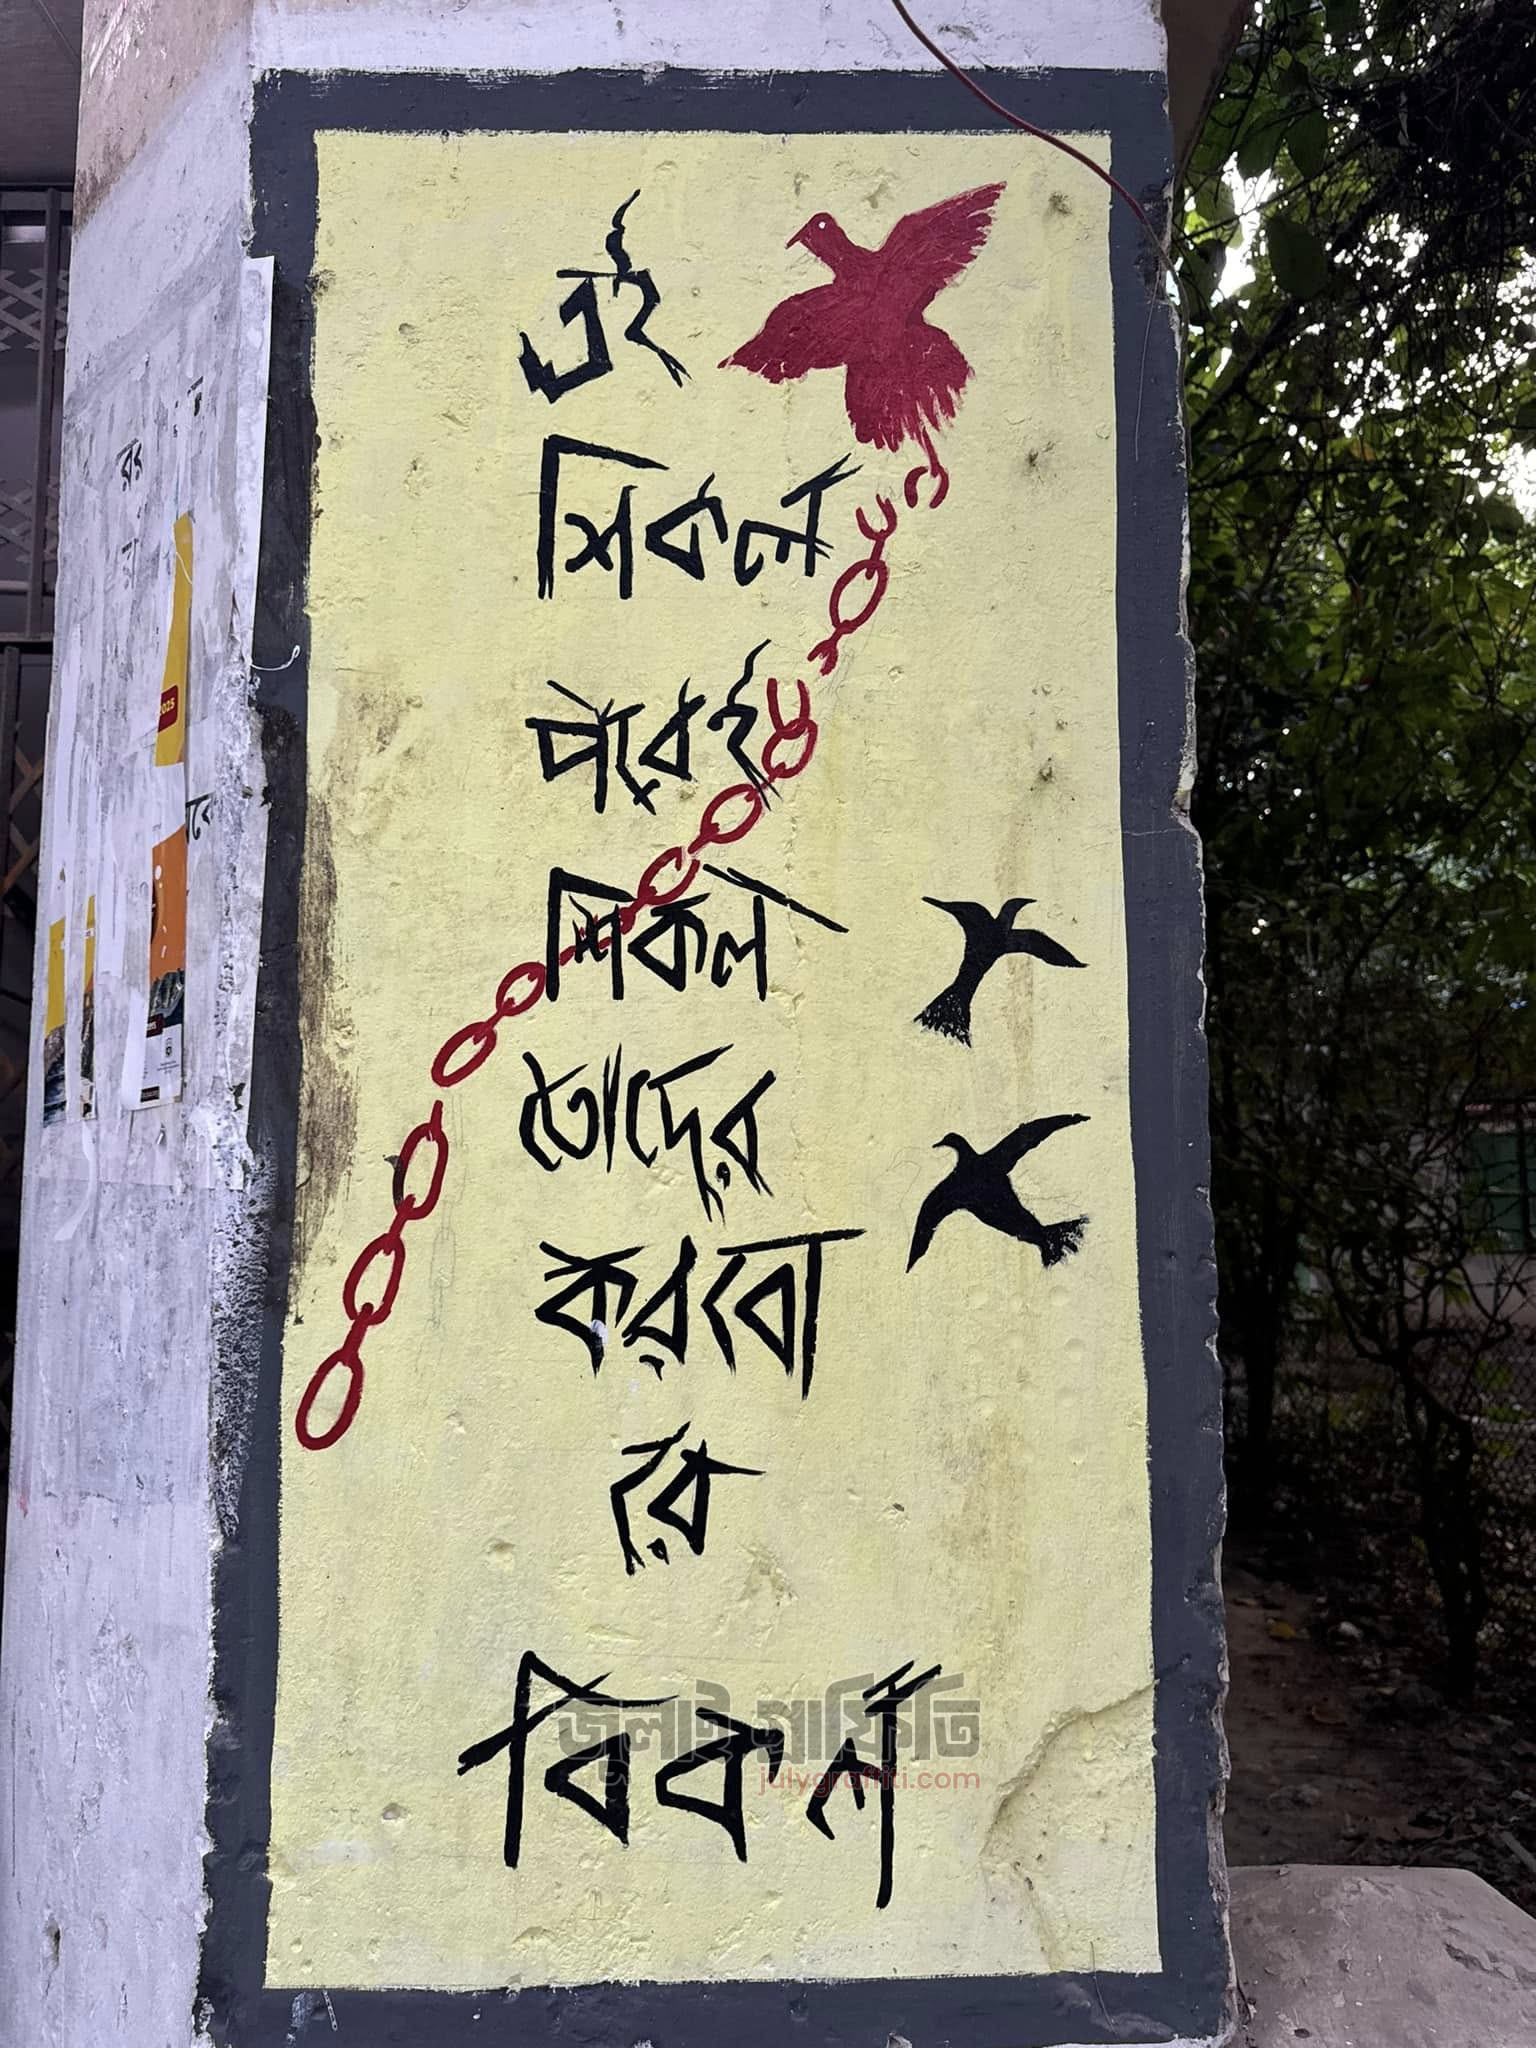 এই
শিকল
পরেই
শিকল
তোদের
করবো
রে
বিকল
জুলাই গ্রাফিতি
julygraffiti.com
2025